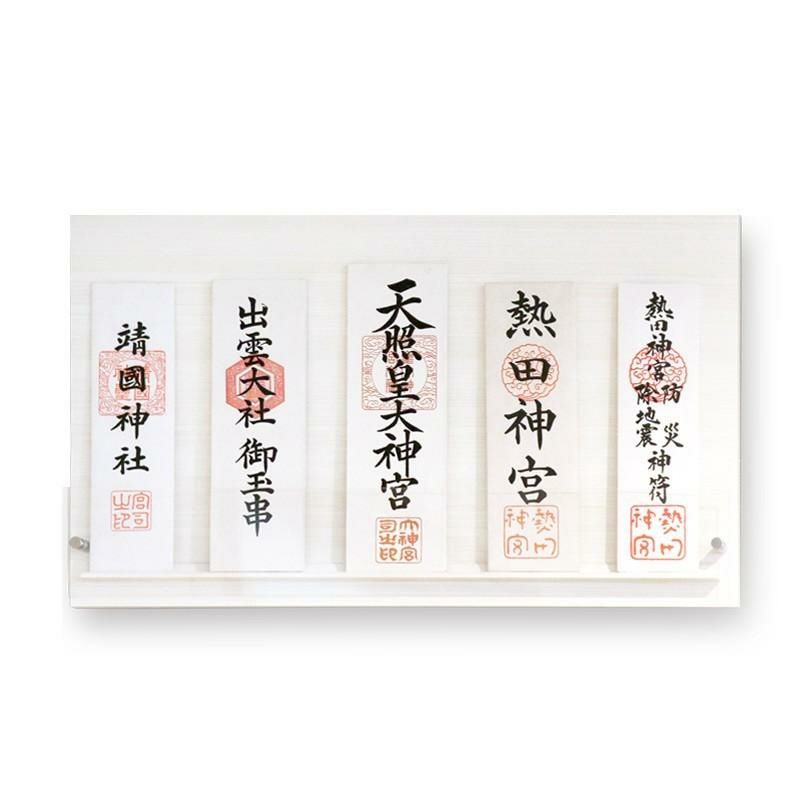 靖國神社
宮司之印
出雲大社御玉串
天照皇大神宮
大神宮司之印
熱田神宮
熱田神宮
熱田神宮
防災
除地震
神符
熱田神宮